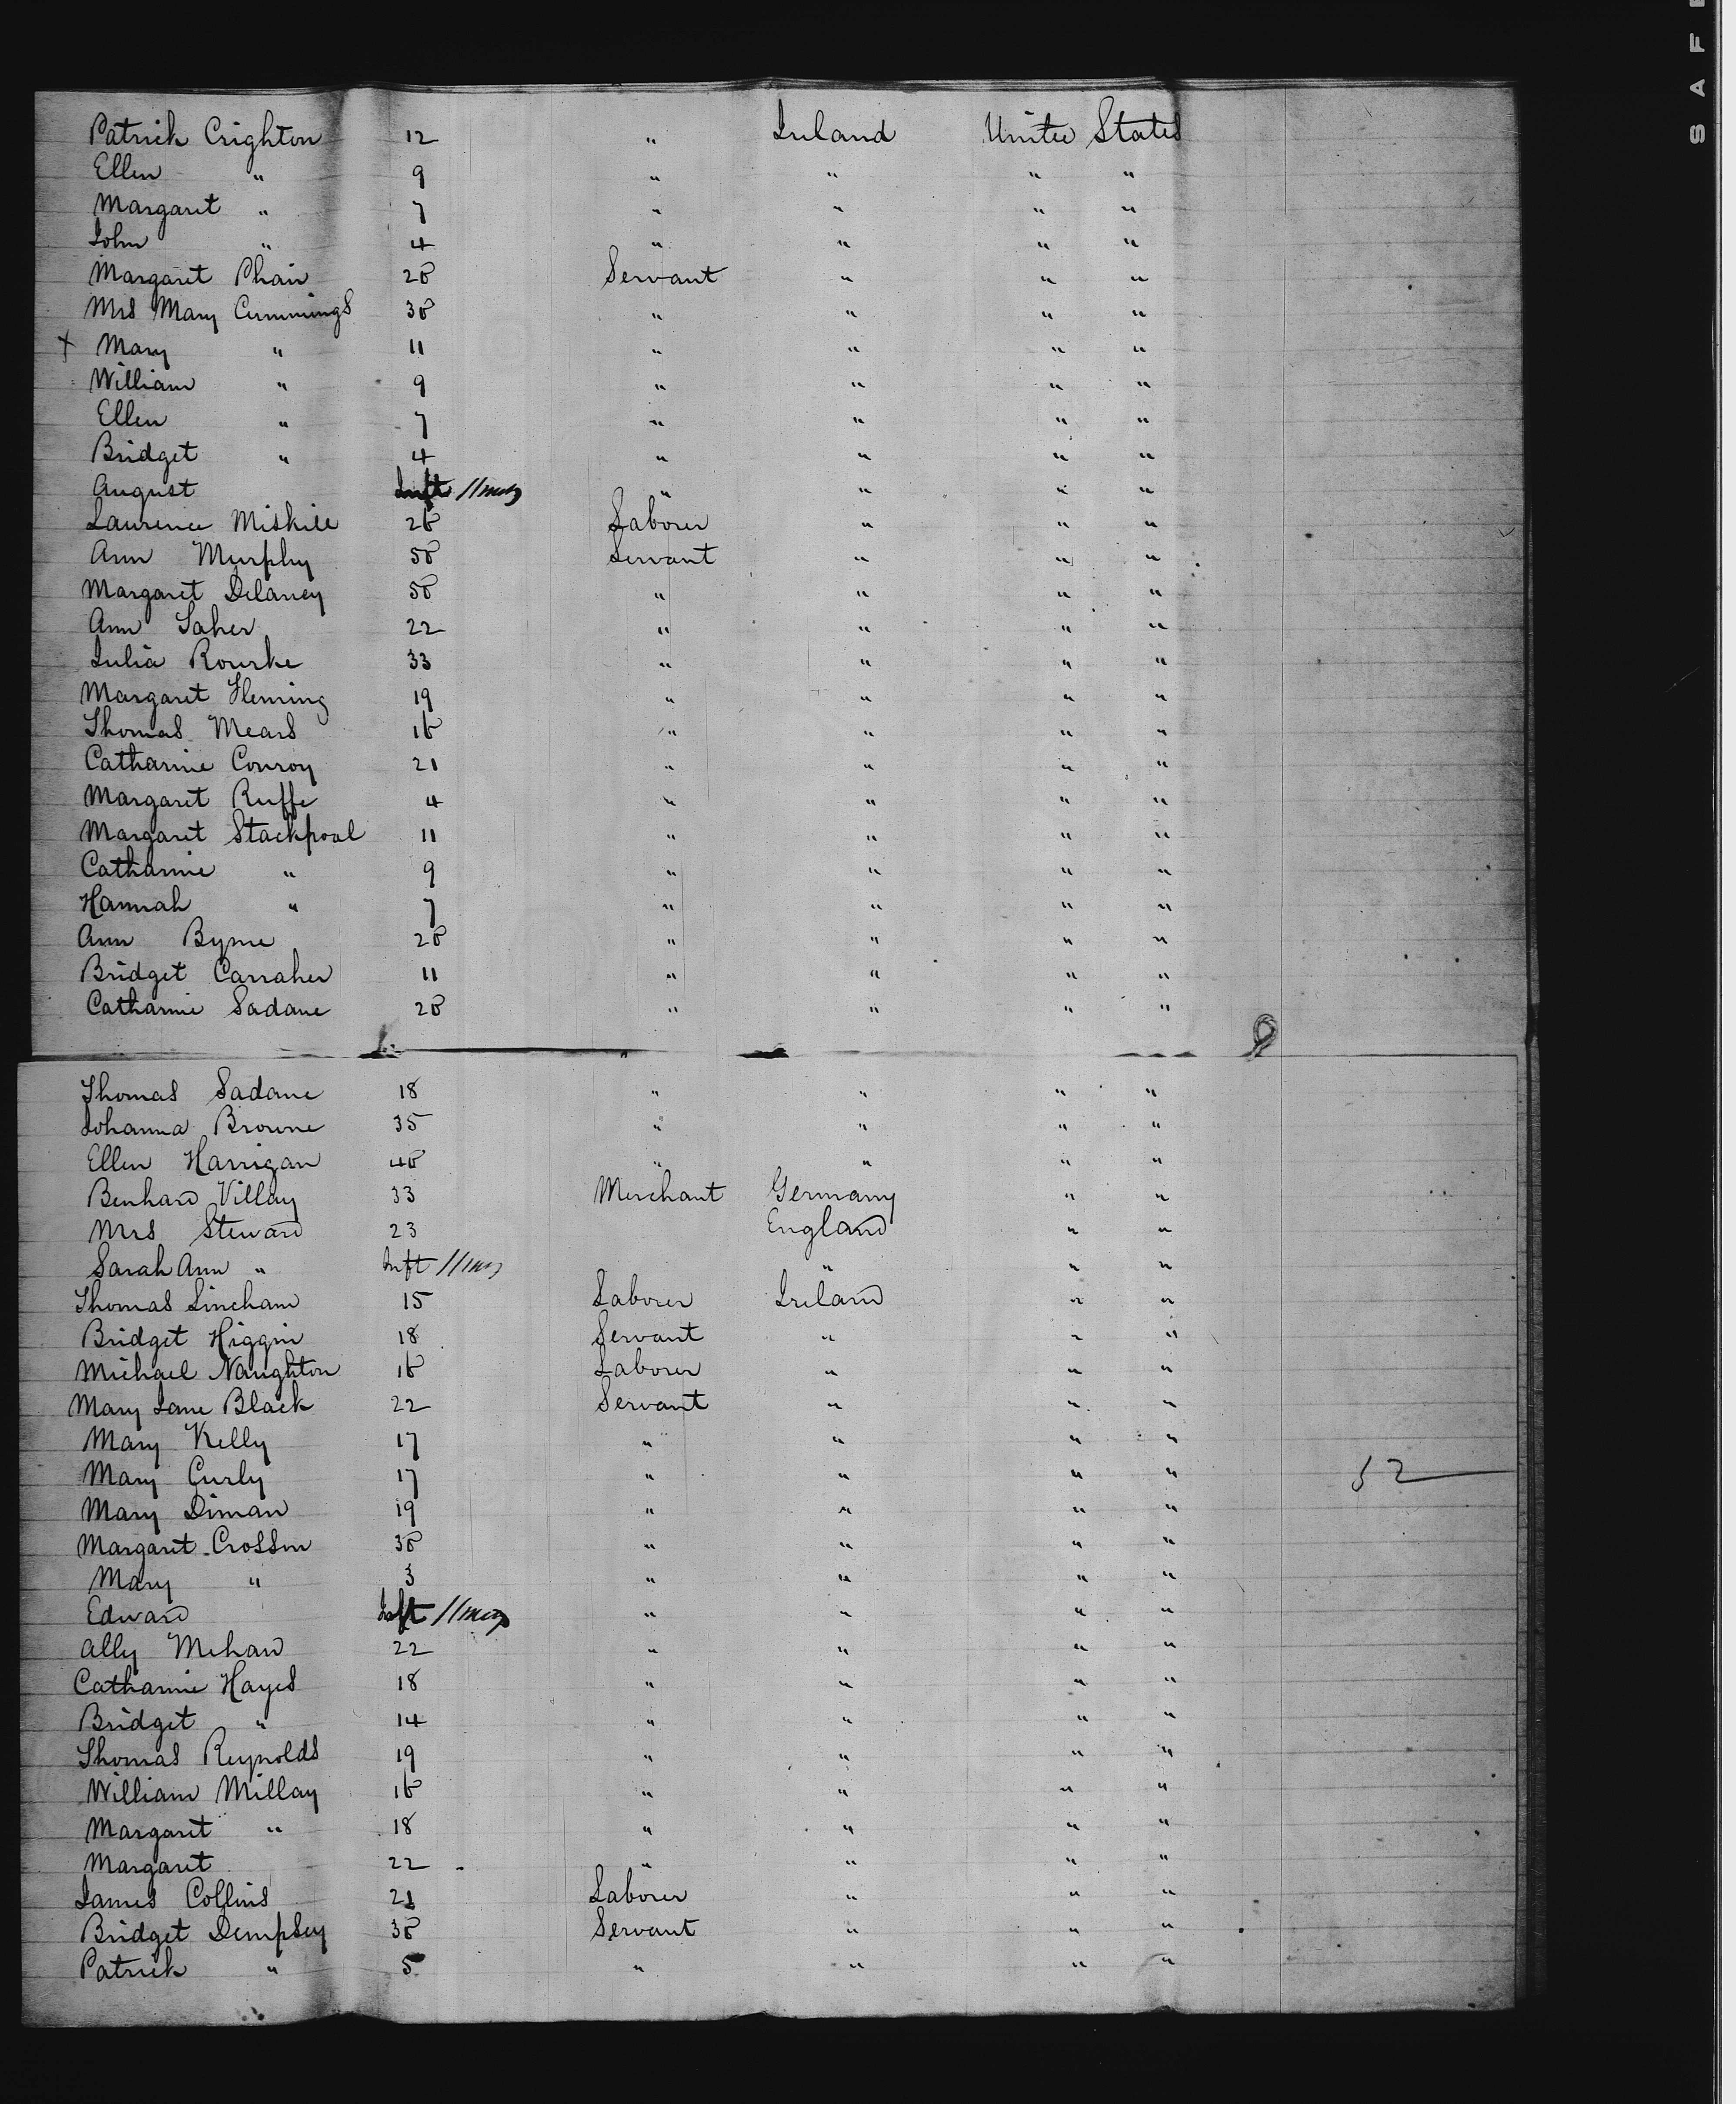 S A F
Patrick Crighton 12 " Ireland United States
Ellen " 9 " " " "
Margaret " 7 " " " "
John " 4 " " " "
Margaret Phair 20 Servant " " "
Mrs Mary Cummings 30 " " " "
X Mary " 11 " " " "
William " 9 " " " "
Ellen " 7 " " " "
Bridget " 4 " " " "
August Inft 11 mos " " " "
Laurence Miskill 20 Laborer " " "
Ann Murphy 50 Servant " " "
Margaret Delaney 50 " " " "
Ann Saher 22 " " " "
Julia Rourke 33 " " " "
Margaret Fleming 19 " " " "
Thomas Mears 16 " " " "
Catharine Conroy 21 " " " "
Margaret Ruffe 4 " " " "
Margaret Stackpoal 11 " " " "
Catharine " 9 " " " "
Hannah " 7 " " " "
Ann Byrne 20 " " " "
Bridget Carraher 11 " " " "
Catharine Sadane 20 " " " "
Thomas Sadane 18 " " " "
Johanna Browne 35 " " " "
Ellen Harrigan 40 " " " "
Benhard Villay 33 Merchant Germany " "
Mrs Steward 23 England " "
Sarah Ann " Inft 11 mos " " "
Thomas Lincham 15 Laborer Ireland " "
Bridget Higgin 18 Servant " " "
Michael Naughton 16 Laborer " " "
Mary Jane Black 22 Servant " " "
Mary Kelly 17 " " " "
Mary Curly 17 " " " " 52
Mary Diman 19 " " " "
Margaret Crossen 30 " " " "
Mary " 3 " " " "
Edward Inft 11 mos " " " "
Ally Mehan 22 " " " "
Catharine Hayes 18 " " " "
Bridget " 14 " " " "
Thomas Reynolds 19 " " " "
William Millay 16 " " " "
Margaret " 18 " " " "
Margaret 22 " " " "
James Collins 21 Laborer " " "
Bridget Dempsey 30 Servant " " "
Patrick " 5 " " " "